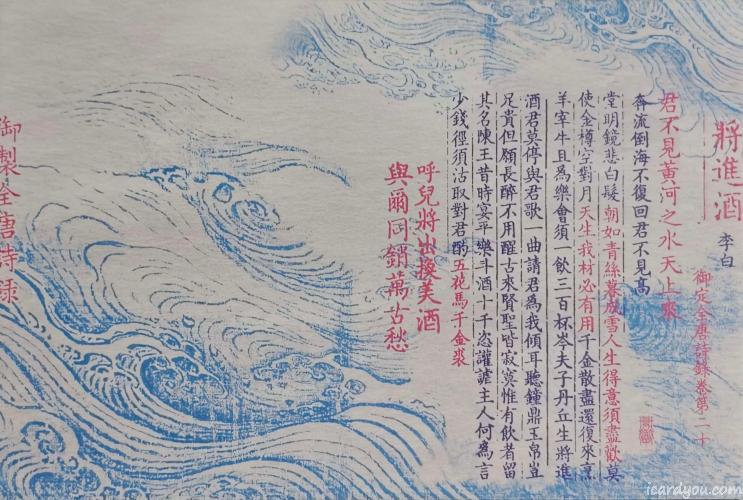 將進酒 李白
御定全唐詩錄卷第二十
君不見黃河之水天上來
奔流倒海不復回君不見高
堂明鏡悲白髮朝如青絲暮成雪人生得意須盡歡莫
使金樽空對月天生我材必有用千金散盡還復來烹
羊宰牛且為樂會須一飲三百杯岑夫子丹丘生將進
酒君莫停與君歌一曲請君為我傾耳聽鐘鼎玉帛豈
足貴但願長醉不用醒古來賢聖皆寂寞惟有飲者留
其名陳王昔時宴平樂斗酒十千恣讙謔主人何為言
少錢徑須沽取對君酌五花馬千金裘
呼兒將出換美酒
與爾同銷萬古愁
御製全唐詩錄
icardyou.com